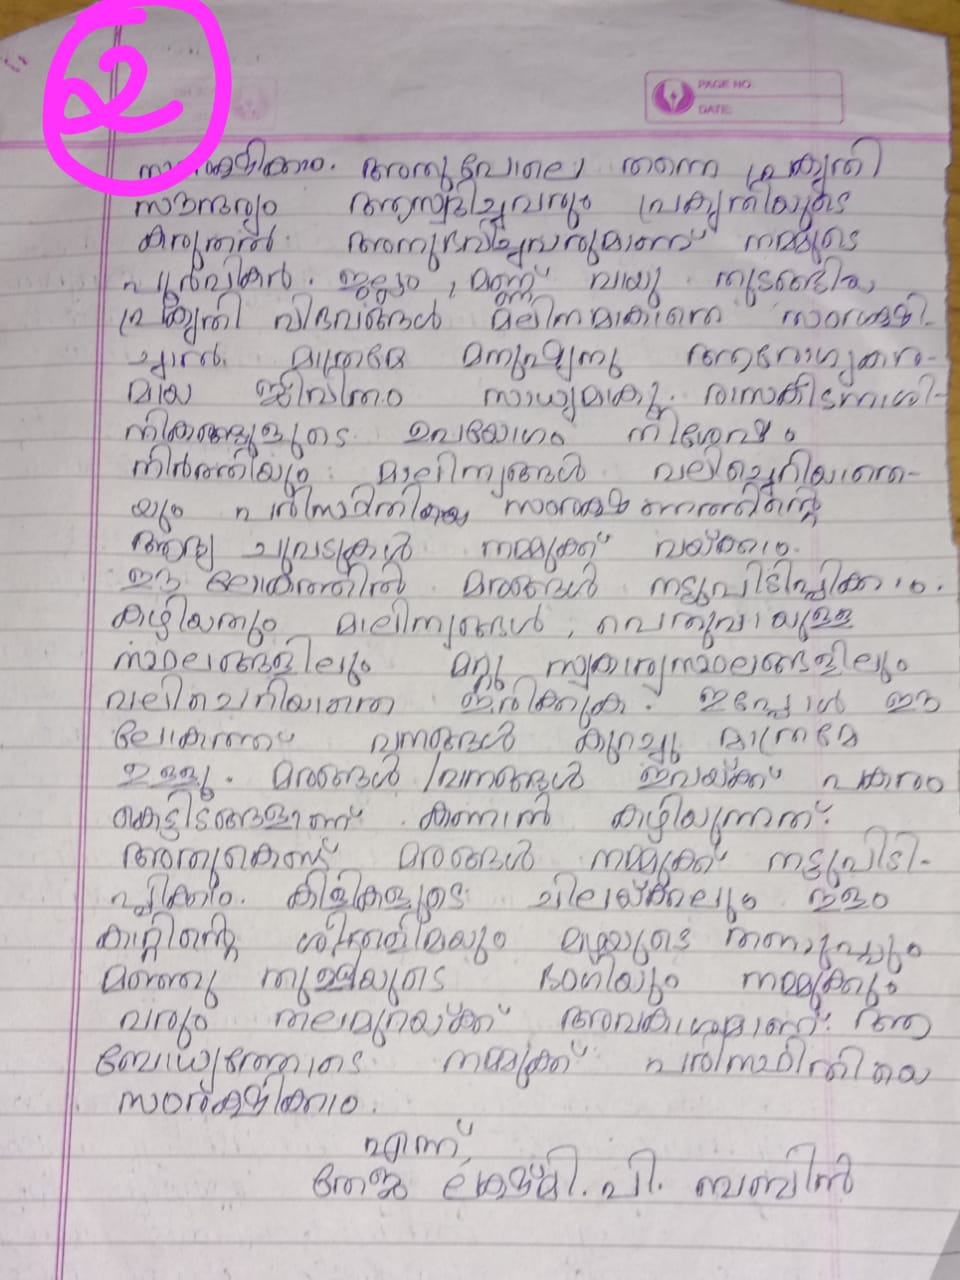 2
PAGE NO.
DATE:
സംരക്ഷിക്കാം. അതുപോലെ തന്നെ പ്രകൃതി
സൗന്ദര്യം ആസ്വദിച്ചവരും പ്രകൃതിയുടെ
കരുതൽ അനുഭവിച്ചവരുമാണ് നമ്മുടെ
പൂർവികർ. ജലം, മണ്ണ് വായു തുടങ്ങിയ
പ്രകൃതി വിഭവങ്ങൾ മലിനമാകാതെ സംരക്ഷി-
ച്ചാൽ മാത്രമേ മനുഷ്യനു ആരോഗ്യകര-
മായ ജീവിതം സാധ്യമാകൂ. രാസകീടനാശി-
നികങ്ങളുടെ ഉപയോഗം നിശേഷം
നിർത്തിയും മാലിന്യങ്ങൾ വലിച്ചെറിയാതെ-
യും പരിസ്ഥിതിയെ സംരക്ഷണത്തിന്റെ
ആദ്യ ചുവടുകൾ നമ്മുക്ക് വയ്ക്കാം.
ഈ ലോകത്തിൽ മരങ്ങൾ നട്ടുപിടിപ്പിക്കാം.
കഴിയതും മാലിന്യങ്ങൾ, പെതുവായുള്ള
സ്ഥലങ്ങളിലും മറ്റു സ്വകാര്യസ്ഥലങ്ങളിലും
വലിചെറിയാതെ ഇരിക്കുക. ഇപ്പോൾ ഈ
ലോകത്ത് വനങ്ങൾ കുറച്ചു മാത്രമേ
ഉള്ളൂ. മരങ്ങൾ / വനങ്ങൾ ഇവയ്ക്ക് പകരം
കെട്ടിടങ്ങളാണ് കാണാൻ കഴിയുന്നത്.
അതുകൊണ്ട് മരങ്ങൾ നമ്മുക്ക് നട്ടുപിടി-
പ്പിക്കാം. കിളികളുടെ ചിലയ്ക്കലും ഇളം
കാറ്റിന്റെ ശീതളിമയും മഴയുടെ തണുപ്പും
മഞ്ഞു തുള്ളിയുടെ ഭംഗിയും നമ്മുക്കും
വരും തലമുറയ്ക്ക് അവകാശമാണ്. ആ
ബോധ്യത്തോടെ നമ്മുക്ക് പരിസ്ഥിതിയെ
സംരക്ഷിക്കാം.
എന്ന്,
തേജ ലക്ഷ്മി. പി. ബബിൻ